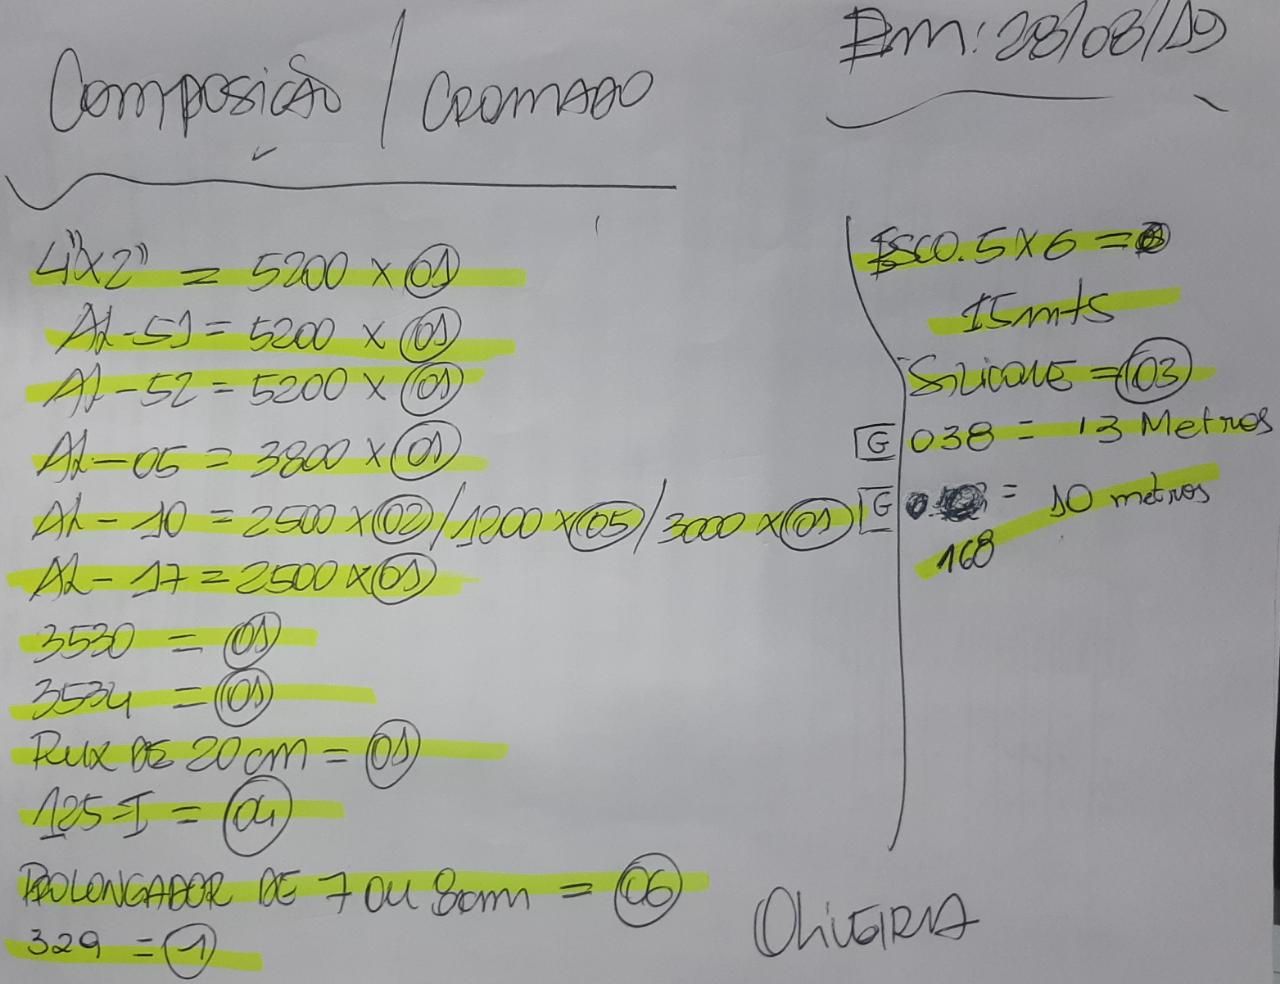 Composição / CROMADO
Em: 28/08/19
4"x2" = 5200 x 01
AL-51 = 5200 x 01
AL-52 = 5200 x 01
AL-05 = 3800 x 01
AL-10 = 2500 x 02 / 1200 x 05 / 3000 x 01
AL-17 = 2500 x 01
3530 = 01
3534 = 01
PUX DE 20cm = 01
125-I = 04
PROLONGADOR DE 7 OU 8cm = 06
329 = 1
ESCO. 5x6 =
15mts
SILICONE = 03
G 038 = 13 Metros
G = 10 metros
168
OLIVEIRA